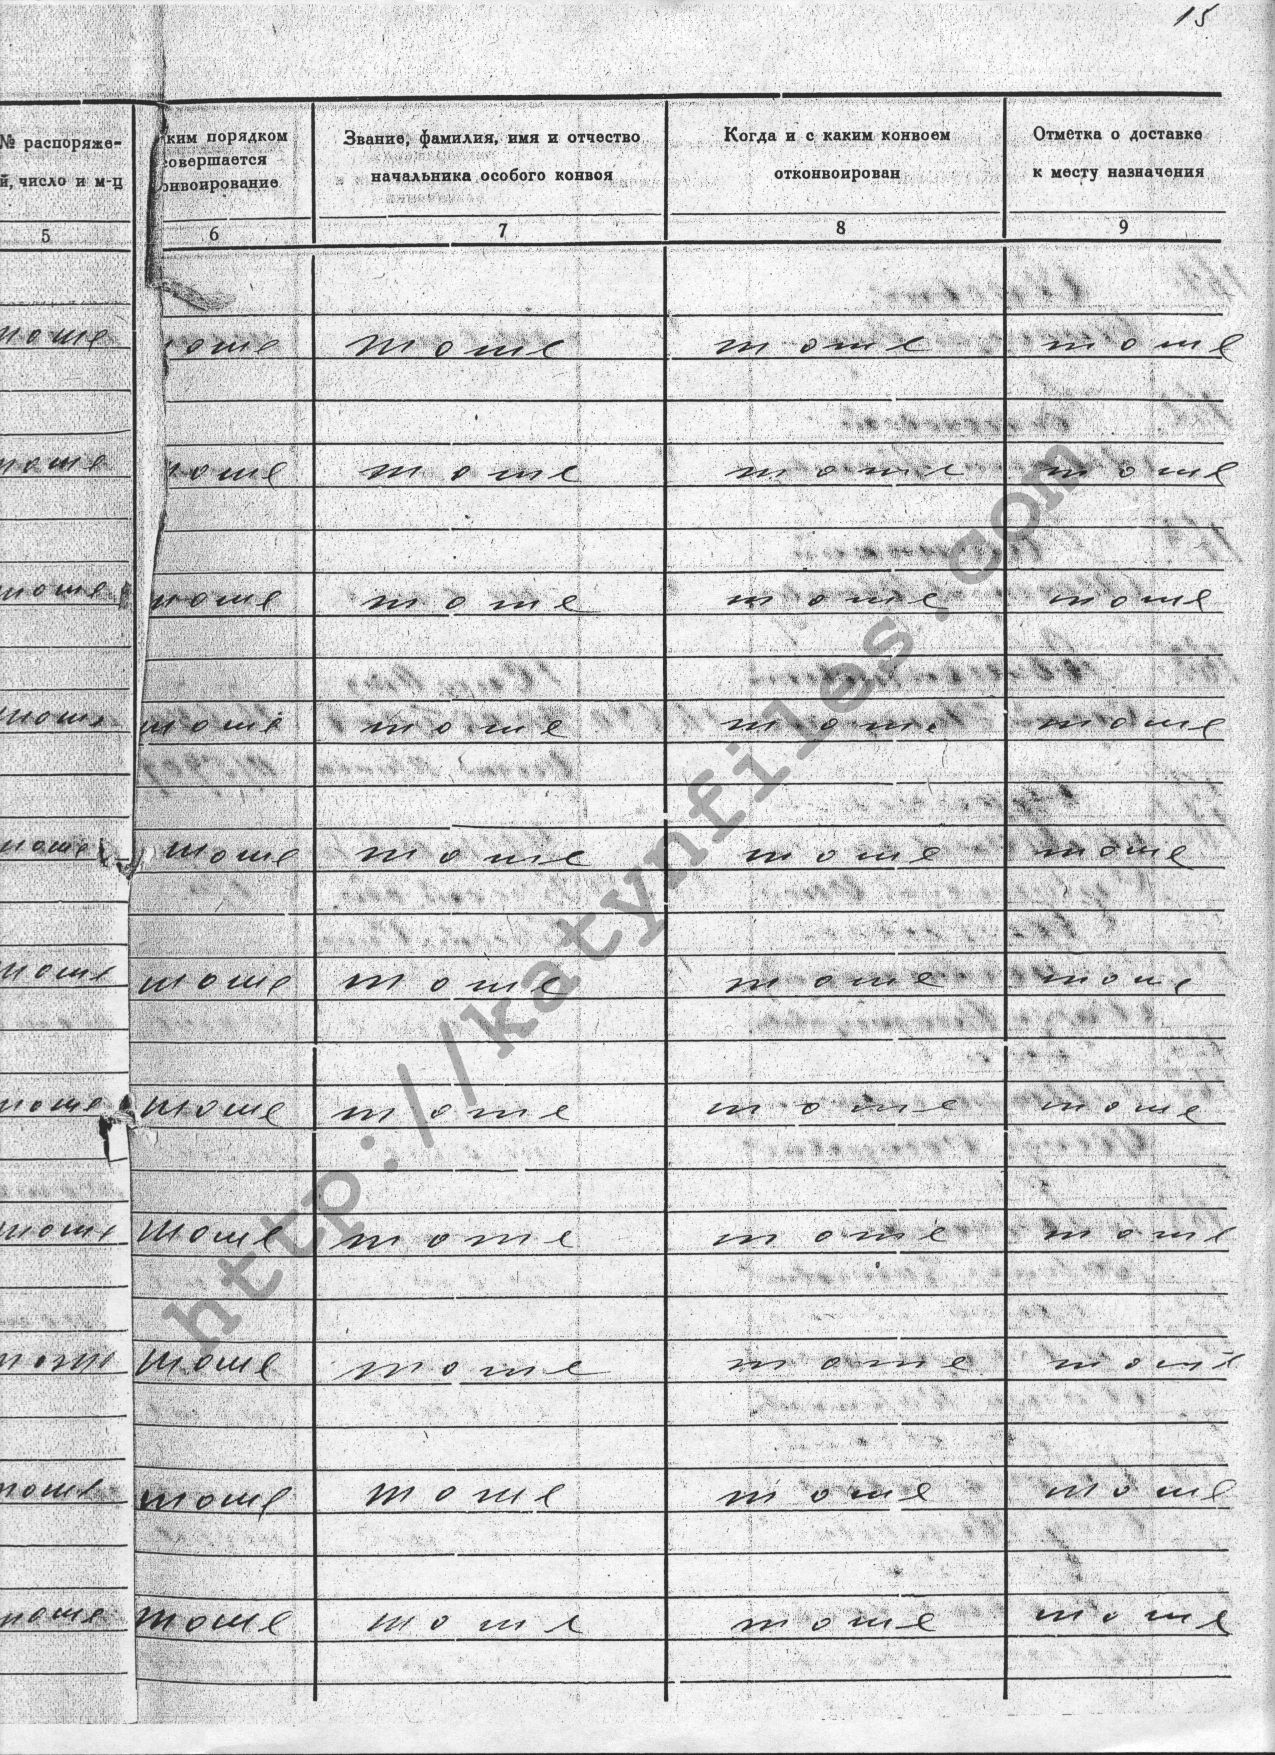 15
№ распоряже-
й, число и м-ц
ким порядком
совершается
онвоирование
Звание, фамилия, имя и отчество
начальника особого конвоя
Когда и с каким конвоем
отконвоирован
Отметка о доставке
к месту назначения
5 6 7 8 9
тоже тоже тоже тоже тоже
тоже тоже тоже тоже тоже
тоже тоже тоже тоже тоже
тоже тоже тоже тоже тоже
тоже тоже тоже тоже тоже
тоже тоже тоже тоже тоже
тоже тоже тоже тоже тоже
тоже тоже тоже тоже тоже
тоже тоже тоже тоже тоже
тоже тоже тоже тоже тоже
тоже тоже тоже тоже тоже
http://katynfiles.com